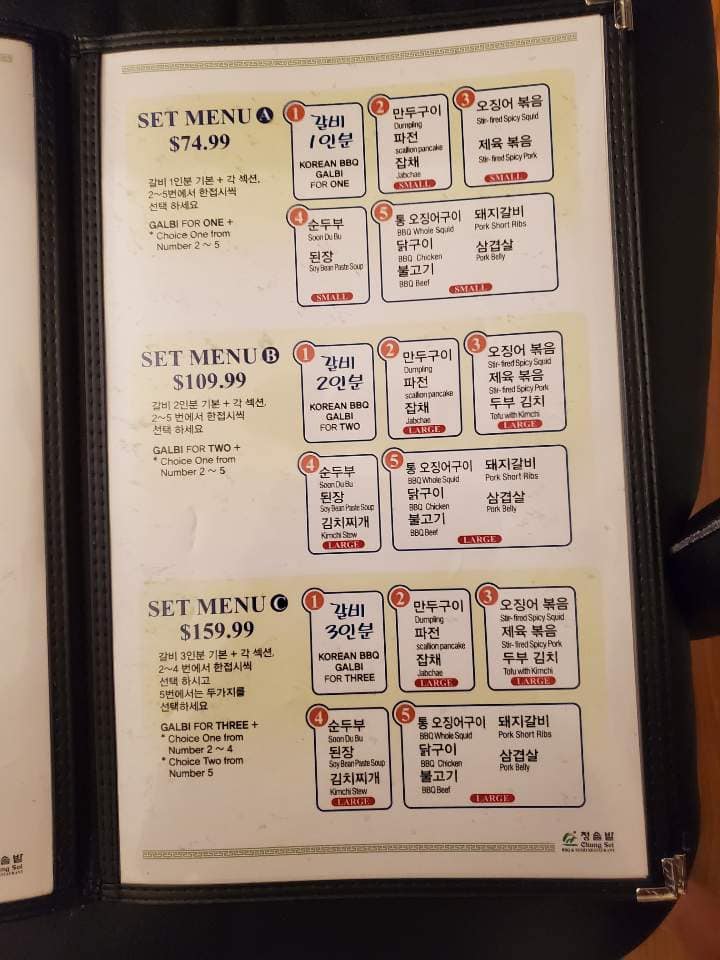 SET MENU A
$74.99
갈비 1인분 기본 + 각 섹션,
2~5번에서 한접시씩
선택 하세요
GALBI FOR ONE +
* Choice One from
Number 2 ~ 5
1
갈비
1인분
KOREAN BBQ
GALBI
FOR ONE
2
만두구이
Dumpling
파전
scallion pancake
잡채
Jabchae
SMALL
3
오징어 볶음
Stir-fired Spicy Squid
제육 볶음
Stir-fired Spicy Pork
SMALL
4
순두부
Soon Du Bu
된장
Soy Bean Paste Soup
SMALL
5
통 오징어구이
BBQ Whole Squid
닭구이
BBQ Chicken
불고기
BBQ Beef
돼지갈비
Pork Short Ribs
삼겹살
Pork Belly
SMALL
SET MENU B
$109.99
갈비 2인분 기본 + 각 섹션,
2~5 번에서 한접시씩
선택 하세요
GALBI FOR TWO +
* Choice One from
Number 2 ~ 5
1
갈비
2인분
KOREAN BBQ
GALBI
FOR TWO
2
만두구이
Dumpling
파전
scallion pancake
잡채
Jabchae
LARGE
3
오징어 볶음
Stir-fired Spicy Squid
제육 볶음
Stir-fired Spicy Pork
두부 김치
Tofu with Kimchi
LARGE
4
순두부
Soon Du Bu
된장
Soy Bean Paste Soup
김치찌개
Kimchi Stew
LARGE
5
통 오징어구이
BBQ Whole Squid
닭구이
BBQ Chicken
불고기
BBQ Beef
돼지갈비
Pork Short Ribs
삼겹살
Pork Belly
LARGE
SET MENU C
$159.99
갈비 3인분 기본 + 각 섹션,
2~4 번에서 한접시씩
선택 하시고
5번에서는 두가지를
선택하세요
GALBI FOR THREE +
* Choice One from
Number 2 ~ 4
* Choice Two from
Number 5
1
갈비
3인분
KOREAN BBQ
GALBI
FOR THREE
2
만두구이
Dumpling
파전
scallion pancake
잡채
Jabchae
LARGE
3
오징어 볶음
Stir-fired Spicy Squid
제육 볶음
Stir-fired Spicy Pork
두부 김치
Tofu with Kimchi
LARGE
4
순두부
Soon Du Bu
된장
Soy Bean Paste Soup
김치찌개
Kimchi Stew
LARGE
5
통 오징어구이
BBQ Whole Squid
닭구이
BBQ Chicken
불고기
BBQ Beef
돼지갈비
Pork Short Ribs
삼겹살
Pork Belly
LARGE
청솔밭
Chung Sol
BBQ & SUSHI RESTAURANT
솔밭